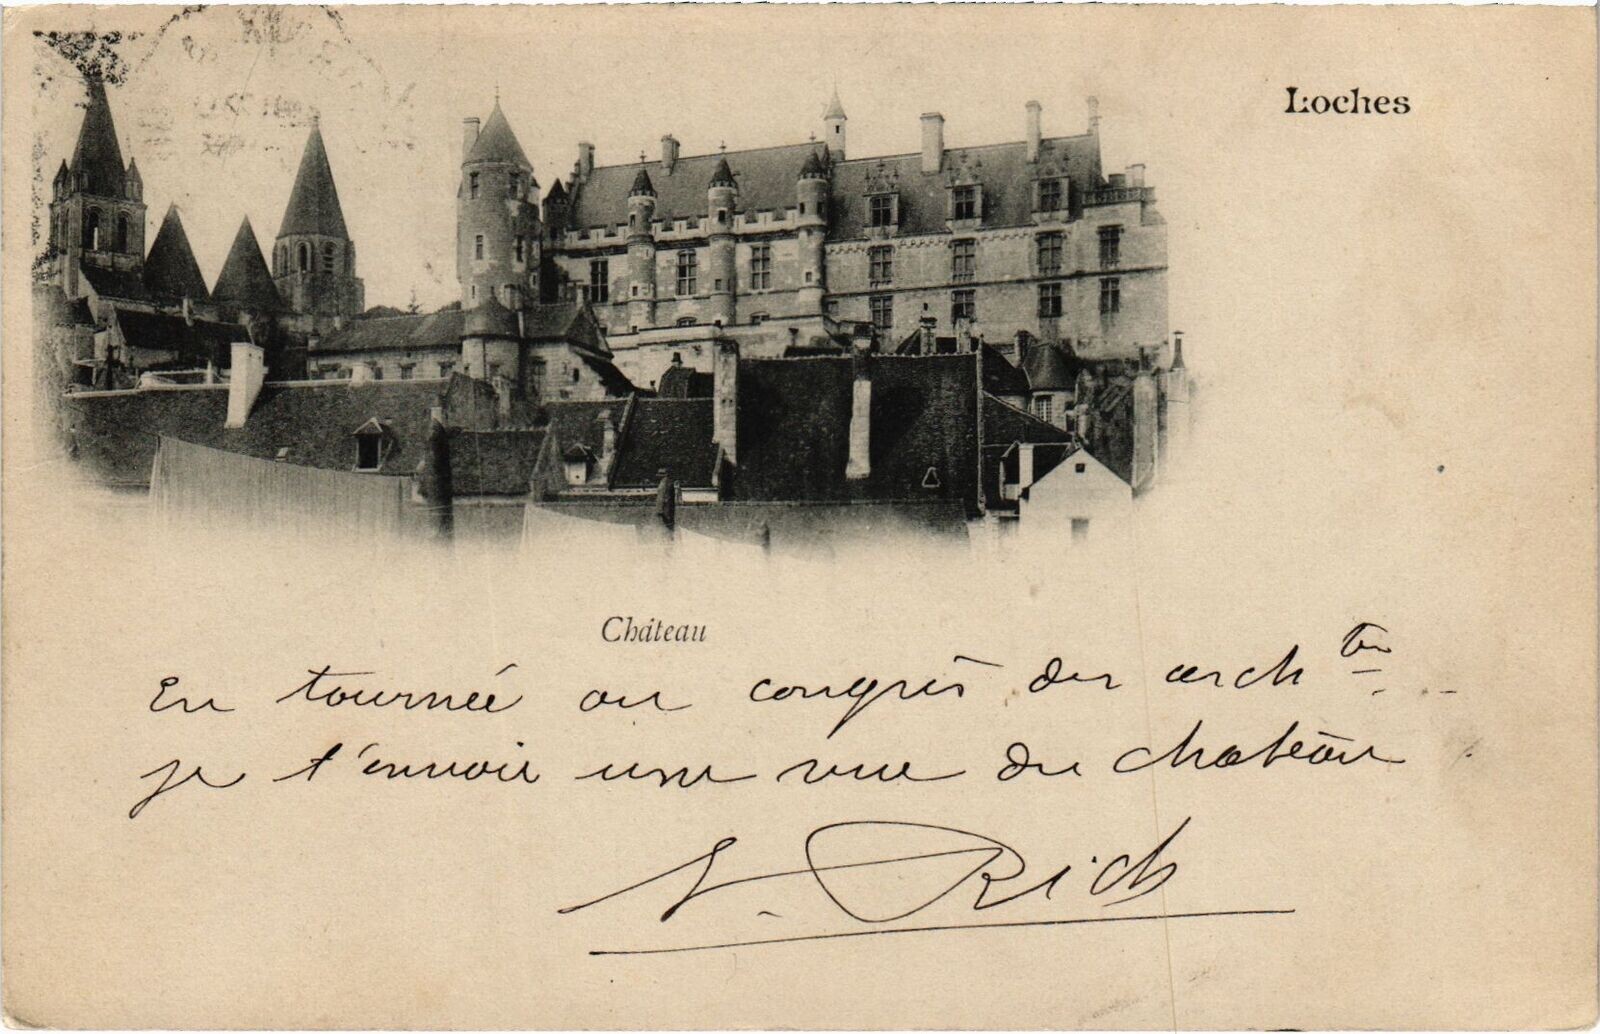 Loches
Château
En tournée au congrès des archtes
je t'envoie une vue du château
V. Rich